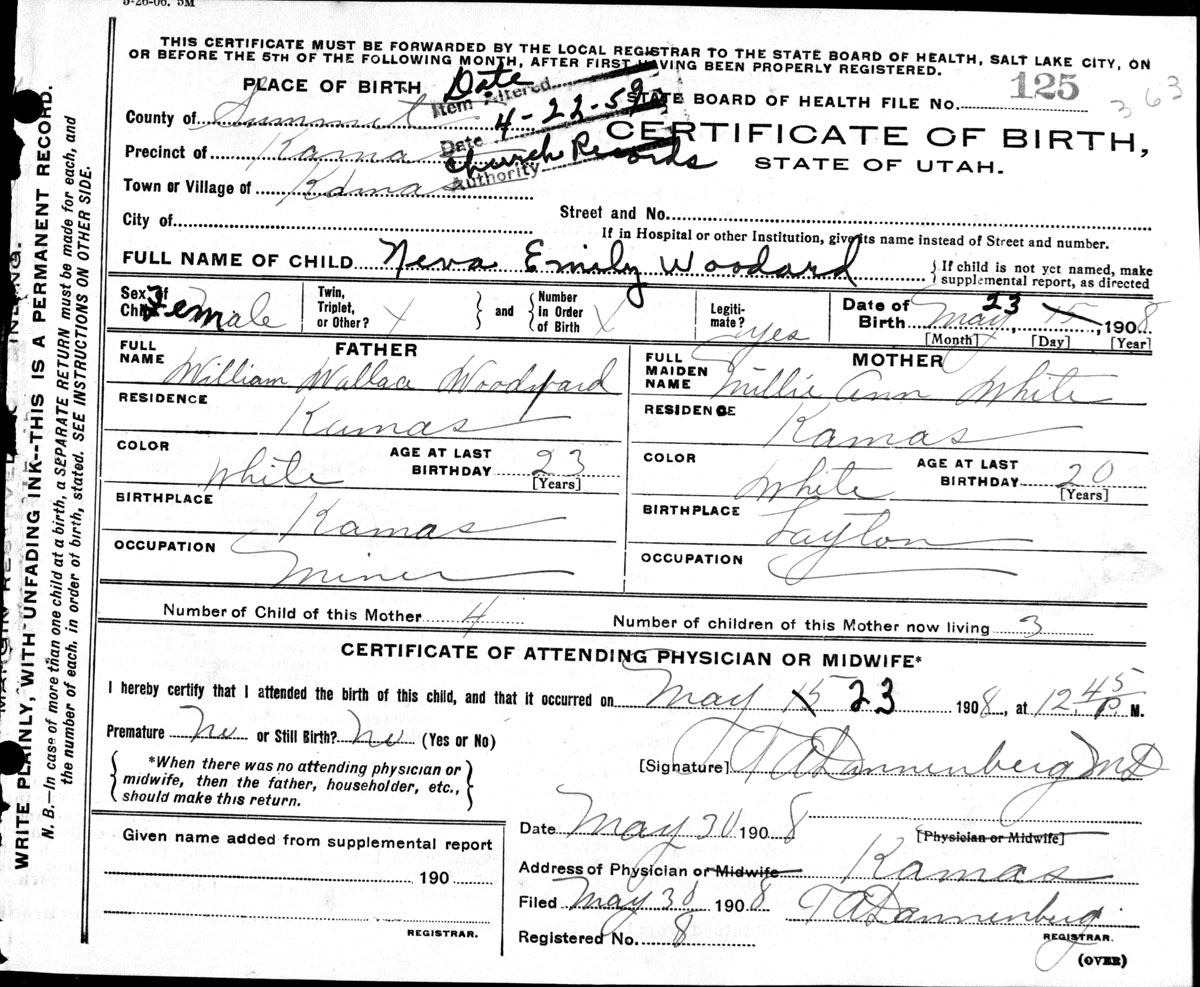 5-26-06. 5M
THIS CERTIFICATE MUST BE FORWARDED BY THE LOCAL REGISTRAR TO THE STATE BOARD OF HEALTH, SALT LAKE CITY, ON
OR BEFORE THE 5TH OF THE FOLLOWING MONTH, AFTER FIRST HAVING BEEN PROPERLY REGISTERED.
PLACE OF BIRTH
Date
Item Altered
STATE BOARD OF HEALTH FILE NO. 125
363
County of Summit
Date 4-22-59
CERTIFICATE OF BIRTH,
Precinct of Kamas
Church Records
Authority
STATE OF UTAH.
Town or Village of Kamas
City of
Street and No.
If in Hospital or other Institution, give its name instead of Street and number.
FULL NAME OF CHILD Neva Emily Woodard
If child is not yet named, make
supplemental report, as directed
Sex of Child Female
Twin, Triplet, or Other? X
and
Number in Order of Birth X
Legitimate? yes
Date of Birth May 23, 15, 1908
[Month] [Day] [Year]
FATHER
FULL NAME William Wallace Woodward
RESIDENCE Kamas
COLOR White
AGE AT LAST BIRTHDAY 23
[Years]
BIRTHPLACE Kamas
OCCUPATION Miner
MOTHER
FULL MAIDEN NAME Millie Ann White
RESIDENCE Kamas
COLOR White
AGE AT LAST BIRTHDAY 20
[Years]
BIRTHPLACE Layton
OCCUPATION
Number of Child of this Mother 4
Number of children of this Mother now living 3
CERTIFICATE OF ATTENDING PHYSICIAN OR MIDWIFE*
I hereby certify that I attended the birth of this child, and that it occurred on May 15 23 1908, at 12.45 P. M.
Premature No or Still Birth? No (Yes or No)
*When there was no attending physician or
midwife, then the father, householder, etc.,
should make this return.
[Signature] T A Dannenberg MD
Date May 30 1908
[Physician or Midwife]
Address of Physician or Midwife Kamas
Filed May 30 1908 T A Dannenberg
REGISTRAR.
Registered No. 8
(OVER)
Given name added from supplemental report
190
REGISTRAR.
WRITE PLAINLY, WITH UNFADING INK--THIS IS A PERMANENT RECORD.
N. B.—In case of more than one child at a birth, a SEPARATE RETURN must be made for each, and
the number of each. in order of birth, stated. SEE INSTRUCTIONS ON OTHER SIDE.